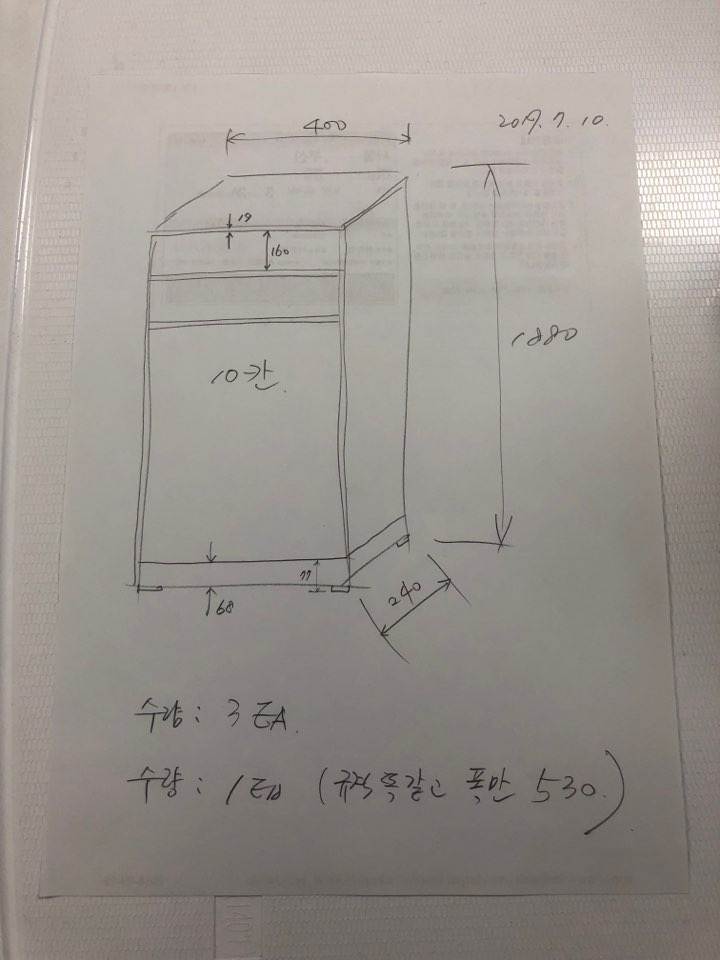 400
2019. 7. 10.
18
160
1880
10칸
77
68
240
수량: 3 EA.
수량: 1 EA (규격 똑같고 폭만 530.)